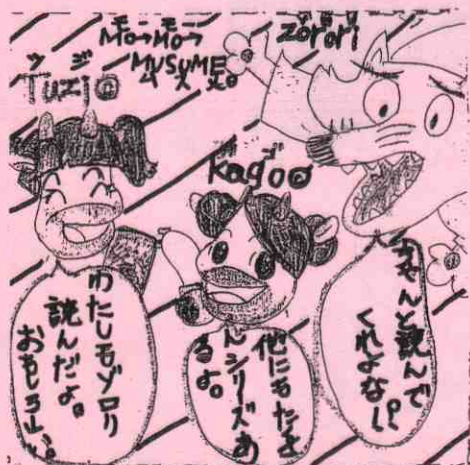 モーモー
Mo→Mo→
MUSUME。
ゾロリ
zorori
ツジ
Tuzi@
kago@
ちゃんと読んで
くれよな
他にも
んシリーズあ
るよ。
わたしモゾロリ
読んだよ。
おもしろーい。